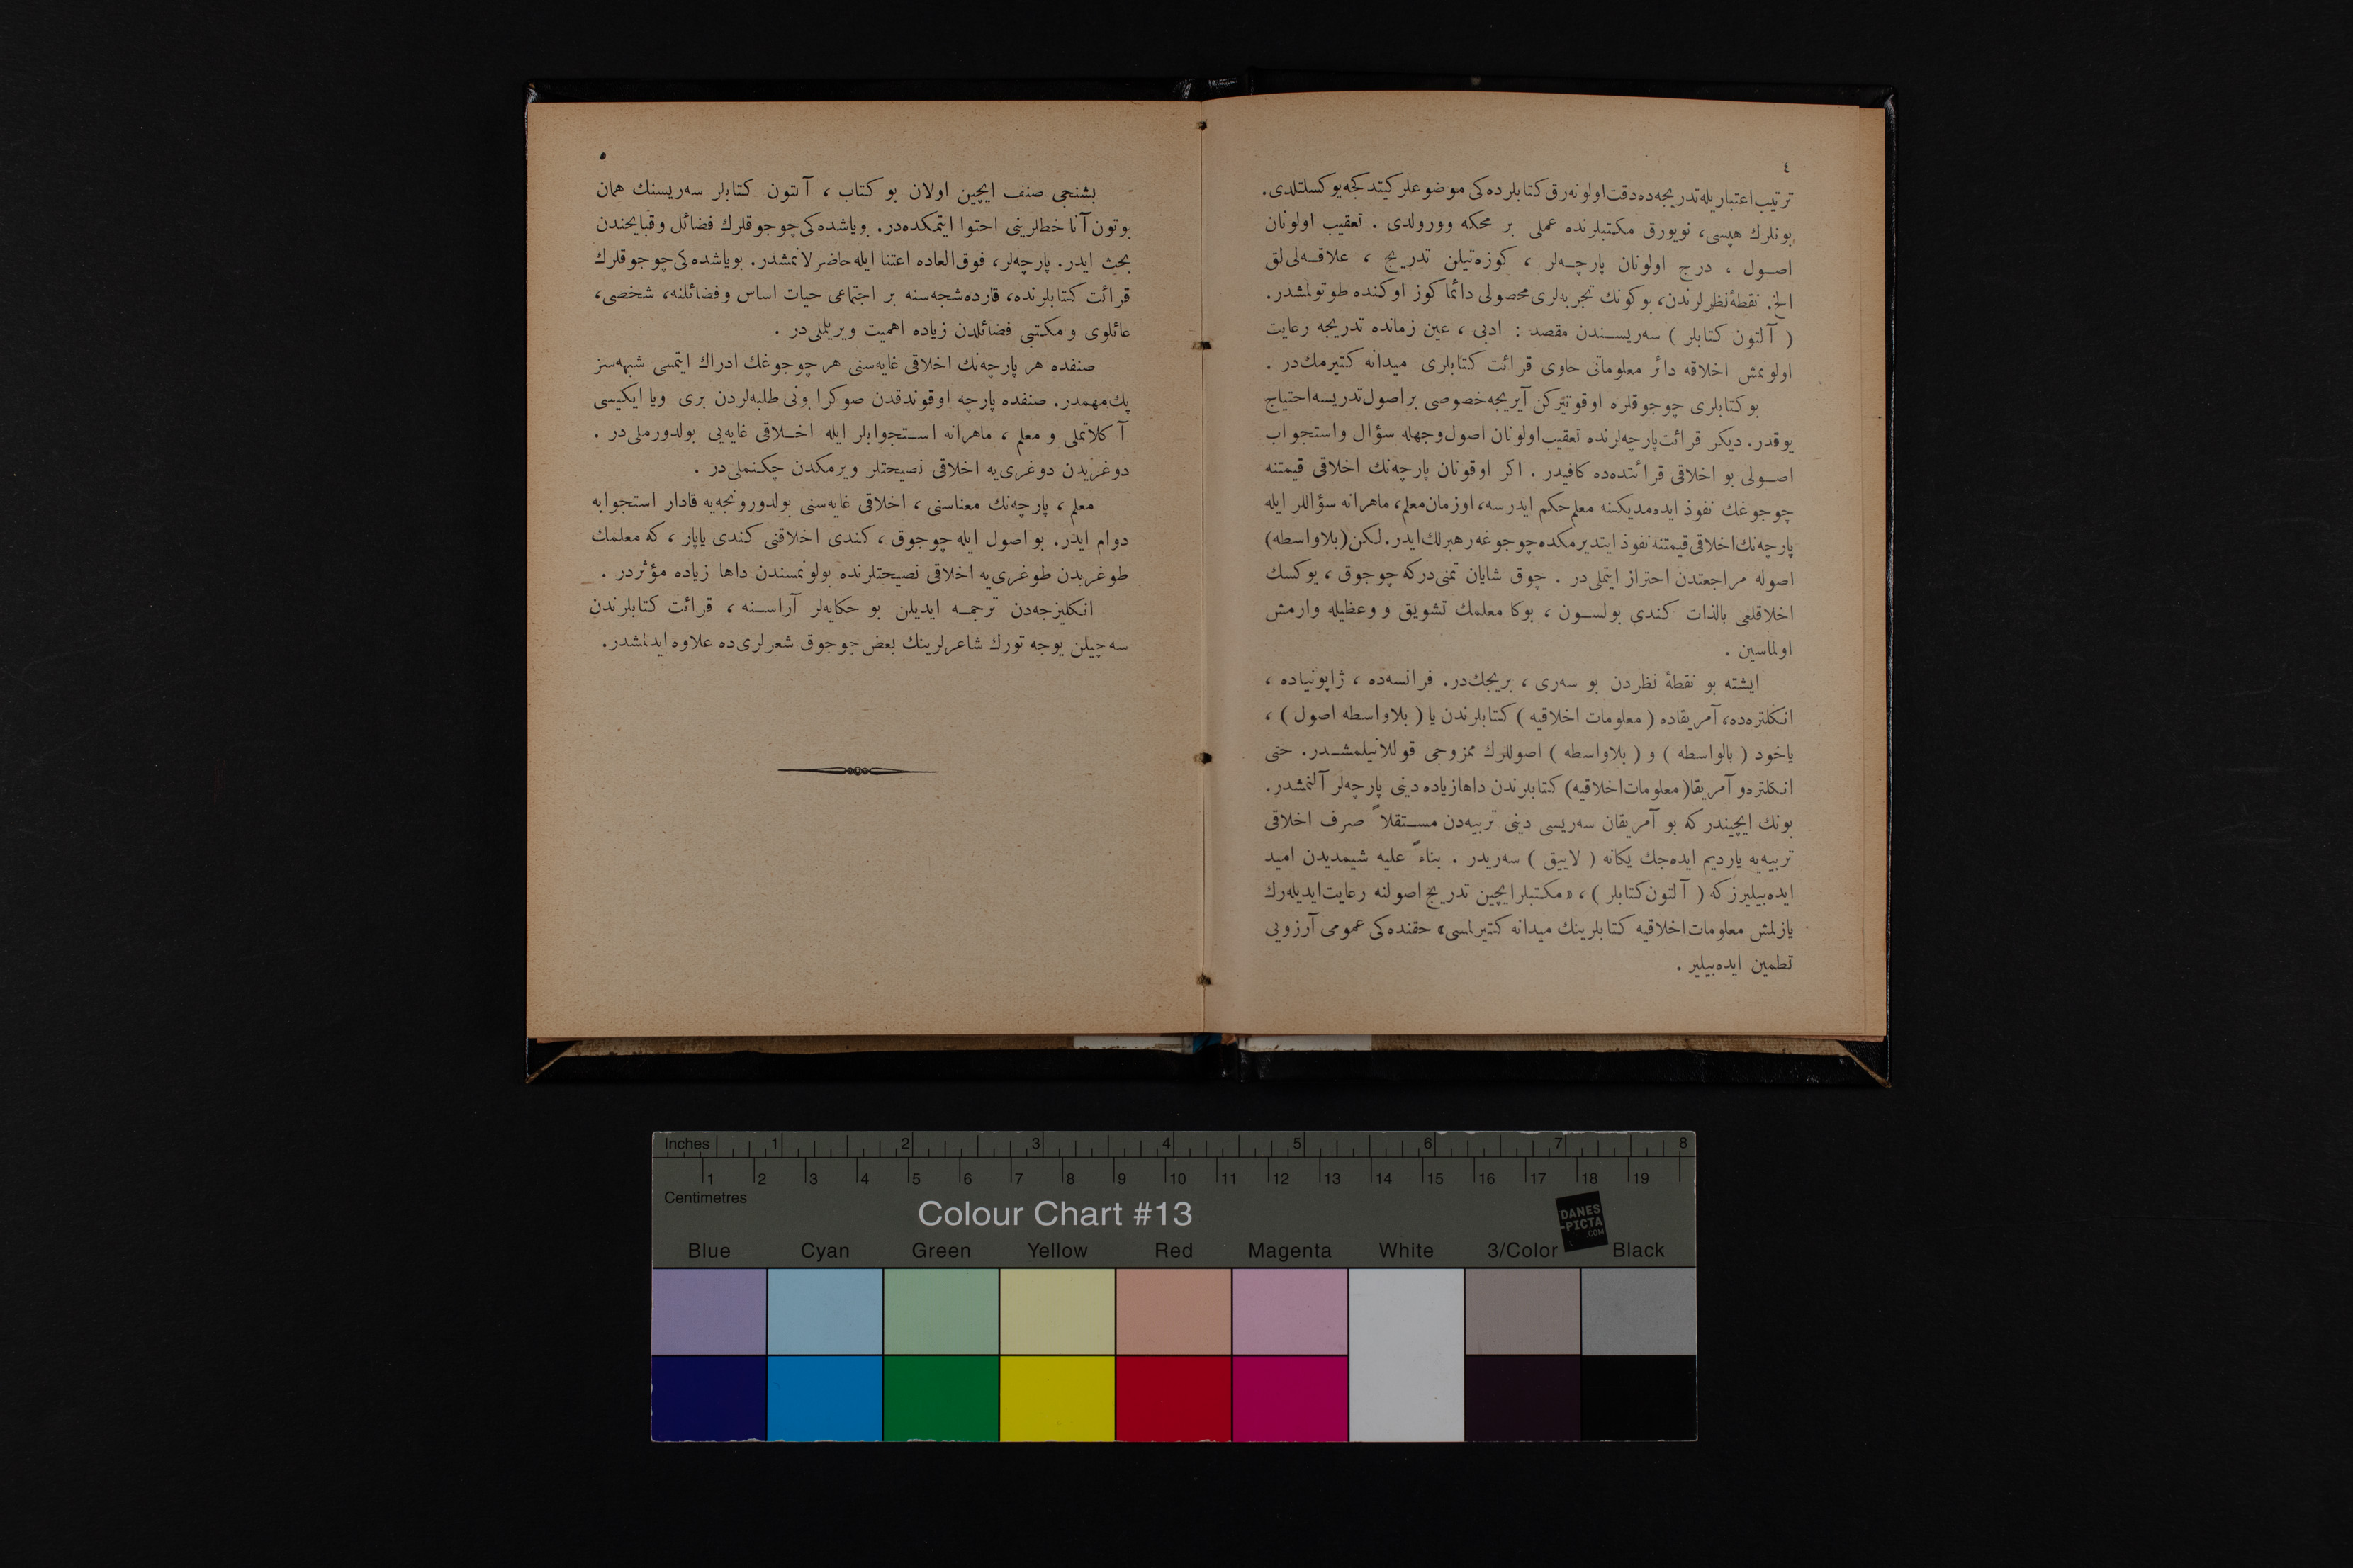 ٤
ترتیب اعتباریله تدریجه ده دقت اولونه‌رق کتابلرده‌کی موضوعلر کیتدکجه یوکسلتلدی.
بونلرك هپسی، نویورق مکتبلرنده عملی بر محکه وورولدی . تعقیب اولونان
اصـول ، درج اولونان پارچـه‌لر ، کوزه‌تیلن تدریج ، علاقـه‌لی لق
الخ. نقطهٔ نظرلرندن، بوکونك تجربه‌لری محصولی دائما کوز اوکنده طوتولمشدر.
( آلتون کتابلر ) سه‌ریسـندن مقصد : ادبی ، عین زمانده تدریجه رعایت
اولونمش اخلاقه دائر معلوماتی حاوی قرائت کتابلری میدانه کتیرمك‌در .
بو کتابلری چوجوقلره اوقوتیرکن آیریجه خصوصی بر اصول تدریسه احتیاج
یوقدر. دیکر قرائت پارچه‌لرنده تعقیب اولونان اصول وجهله سؤال و استجواب
اصـولی بو اخلاقی قرائتده‌ده کافیدر . اکر اوقونان پارچه‌نك اخلاقی قیمتنه
چوجوغك نفوذ ایده‌مدیکنه معلم حکم ایدرسه، اوزمان معلم، ماهرانه سؤاللر ایله
پارچه‌نك اخلاقی قیمتنه نفوذ ایتدیرمکده چوجوغه رهبرلك ایدر. لکن (بلاواسطه)
اصوله مراجعتدن احتراز ایتملی‌در . چوق شایان تمنی‌درکه چوجوق ، یوکسك
اخلاقلغی بالذات کندی بولسـون ، بوکا معلمك تشویق و وعظیله وارمش
اولماسین .
ایشته بو نقطهٔ نظردن بو سه‌ری ، بریجك‌در. فرانسه‌ده ، ژاپونیاده ،
انکلتره‌ده، آمریقاده ( معلومات اخلاقیه ) کتابلرندن یا ( بلاواسطه اصول ) ،
یاخود ( بالواسطه ) و ( بلاواسطه ) اصوللرك ممزوجی قوللانیلمشـدر. حتی
انکلتره و آمریقا (معلومات اخلاقیه) کتابلرندن داها زیاده دینی پارچه‌لر آلنمشدر.
بونك ایچیندر که بو آمریقان سه‌ریسی دینی تربیه‌دن مسـتقلاً صرف اخلاقی
تربیه‌یه یاردیم ایده‌جك یکانه ( لاییق ) سه‌ریدر . بناءً علیه شیمدیدن امید
ایده‌بیلیرز که ( آلتون کتابلر ) ، «مکتبلر ایچین تدریج اصولنه رعایت ایدیله‌رك
یازلمش معلومات اخلاقیه کتابلرینك میدانه کتیرلمسی» حقنده‌کی عمومی آرزویی
تطمین ایده‌بیلیر .
٥
بشنجی صنف ایچین اولان بو کتاب ، آلتون کتابلر سه‌ریسنك همان
بوتون آنا خطلرینی احتوا ایتمکده‌در. و یاشده‌کی چوجوقلرك فضائل و قبایحندن
بحث ایدر. پارچه‌لر، فوق‌العاده اعتنا ایله حاضرلانمشدر. بویاشده‌کی چوجوقلرك
قرائت کتابلرنده، قارده‌شجه‌سنه بر اجتماعی حیات اساس و فضائلنه، شخصی،
عائلوی و مکتبی فضائلدن زیاده اهمیت ویریلملی‌در .
صنفده هر پارچه‌نك اخلاقی غایه‌سنی هر چوجوغك ادراك ایتمسی شبهه‌سز
پك مهمدر. صنفده پارچه اوقوندقدن صوکرا بونی طلبه‌لردن بری ویا ایکیسی
آکلاتملی و معلم ، ماهرانه اسـتجوابلر ایله اخـلاقی غایه‌یی بولدورملی‌در .
دوغریدن دوغری‌یه اخلاقی نصیحتلر ویرمکدن چکنملی‌در .
معلم ، پارچه‌نك معناسنی ، اخلاقی غایه‌سنی بولدورونجه‌یه قادار استجوابه
دوام ایدر. بو اصول ایله چوجوق ، کندی اخلاقنی کندی یاپار ، که معلمك
طوغریدن طوغری‌یه اخلاقی نصیحتلرنده بولونمسندن داها زیاده مؤثردر .
انکلیزجه‌دن ترجمـه ایدیلن بو حکایه‌لر آراسـنه ، قرائت کتابلرندن
سه‌چیلن یوجه تورك شاعرلرینك بعض چوجوق شعرلری‌ده علاوه ایدلمشدر.
Inches 1 2 3 4 5 6 7 8
1 2 3 4 5 6 7 8 9 10 11 12 13 14 15 16 17 18 19
Centimetres
Colour Chart #13
DANES
-PICTA
.COM
Blue Cyan Green Yellow Red Magenta White 3/Color Black